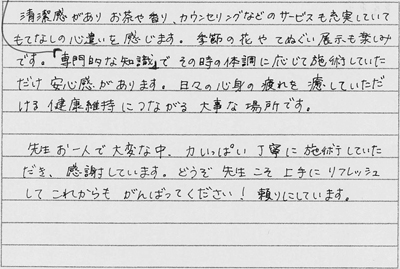 清潔感があり お茶や香り、カウンセリングなどのサービスも充実していて
もてなしの心遣いを感じます。季節の花や てぬぐい展示も楽しみ
です。「専門的な知識」で その時の体調に応じて施術していた
だけ 安心感があります。日々の心身の疲れを癒していただ
ける 健康維持につながる 大事な場所です。
先生お一人で大変な中、力いっぱい丁寧に施術していた
だき、感謝しています。どうぞ 先生こそ 上手に リフレッシュ
して これからも がんばってください！頼りにしています。